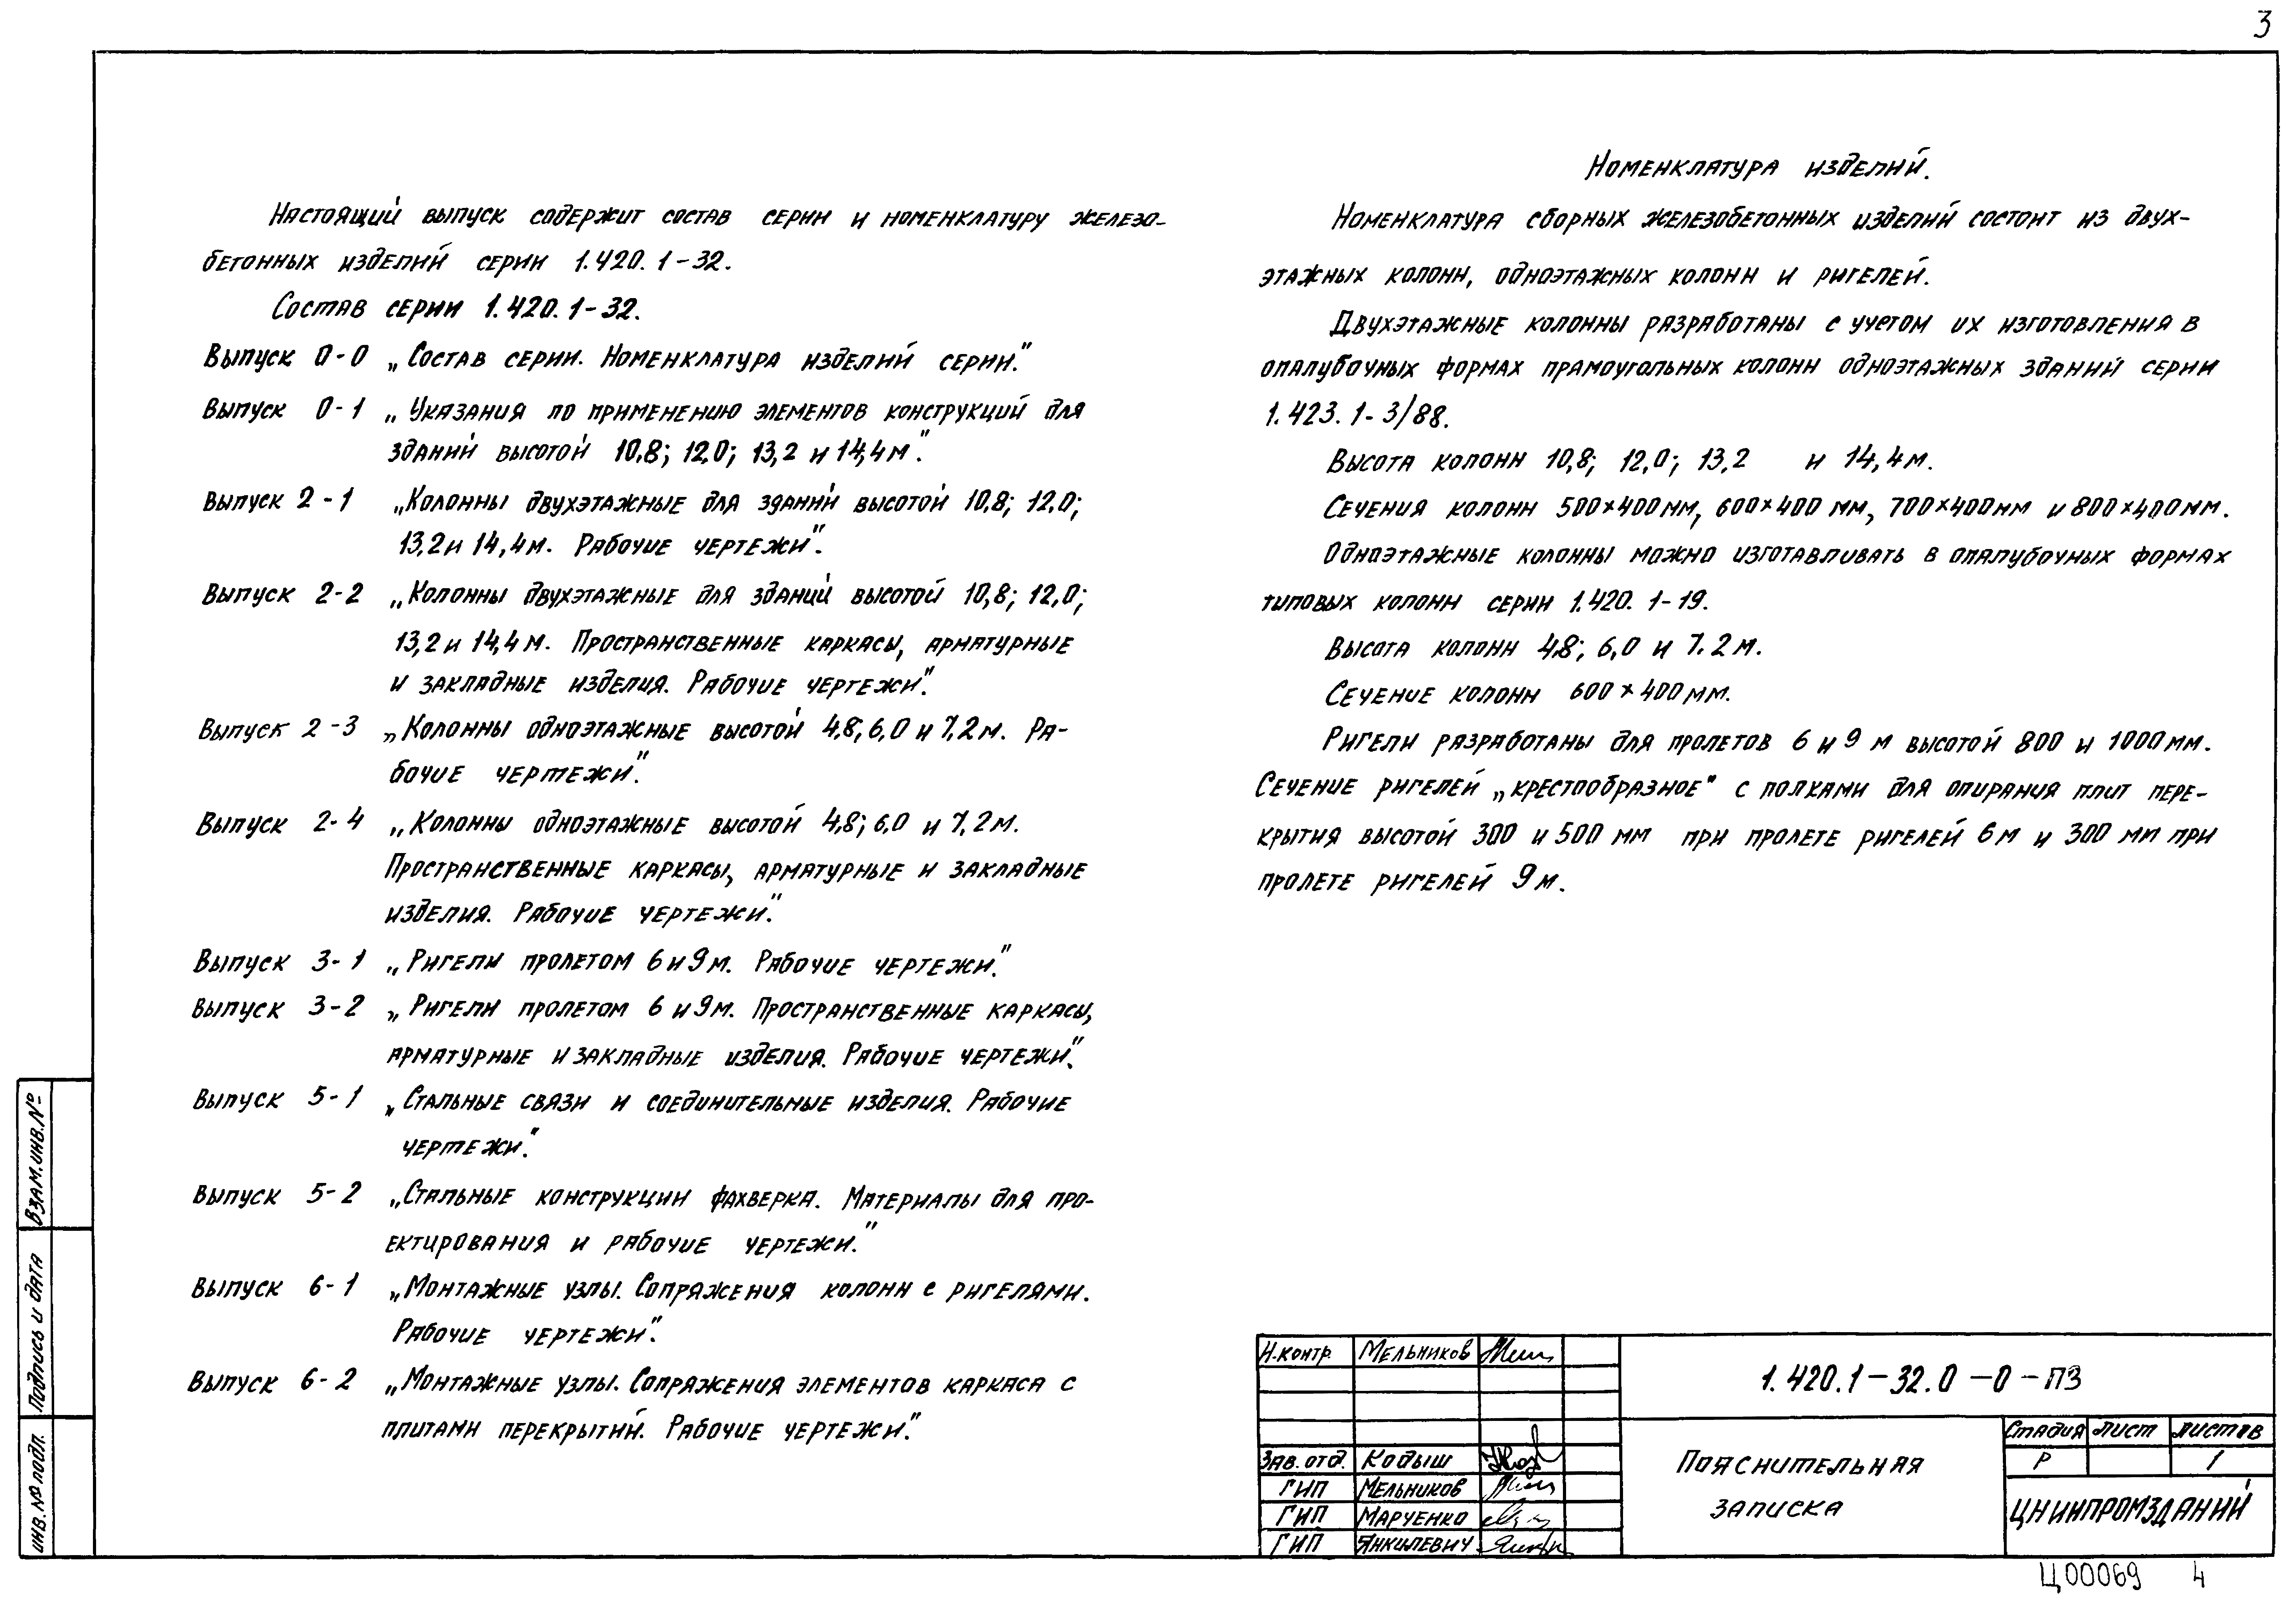 3
Настоящий выпуск содержит состав серии и номенклатуру железо-
бетонных изделий серии 1.420.1-32.
Состав серии 1.420.1-32.
Выпуск 0-0 „Состав серии. Номенклатура изделий серии."
Выпуск 0-1 „Указания по применению элементов конструкций для
зданий высотой 10,8; 12,0; 13,2 и 14,4м".
Выпуск 2-1 „Колонны двухэтажные для зданий высотой 10,8; 12,0;
13,2 и 14,4м. Рабочие чертежи".
Выпуск 2-2 „Колонны двухэтажные для зданий высотой 10,8; 12,0;
13,2 и 14,4м. Пространственные каркасы, арматурные
и закладные изделия. Рабочие чертежи".
Выпуск 2-3 „Колонны одноэтажные высотой 4,8; 6,0 и 7,2м. Ра-
бочие чертежи".
Выпуск 2-4 „Колонны одноэтажные высотой 4,8; 6,0 и 7,2м.
Пространственные каркасы, арматурные и закладные
изделия. Рабочие чертежи".
Выпуск 3-1 „Ригели пролетом 6 и 9м. Рабочие чертежи."
Выпуск 3-2 „Ригели пролетом 6 и 9м. Пространственные каркасы,
арматурные и закладные изделия. Рабочие чертежи".
Выпуск 5-1 „Стальные связи и соединительные изделия. Рабочие
чертежи".
Выпуск 5-2 „Стальные конструкции фахверка. Материалы для про-
ектирования и рабочие чертежи."
Выпуск 6-1 „Монтажные узлы. Сопряжения колонн с ригелями.
Рабочие чертежи".
Выпуск 6-2 „Монтажные узлы. Сопряжения элементов каркаса с
плитами перекрытий. Рабочие чертежи".
Номенклатура изделий.
Номенклатура сборных железобетонных изделий состоит из двух-
этажных колонн, одноэтажных колонн и ригелей.
Двухэтажные колонны разработаны с учетом их изготовления в
опалубочных формах прямоугольных колонн одноэтажных зданий серии
1.423.1-3/88.
Высота колонн 10,8; 12,0; 13,2 и 14,4м.
Сечения колонн 500×400мм, 600×400 мм, 700×400мм и 800×400мм.
Одноэтажные колонны можно изготавливать в опалубочных формах
типовых колонн серии 1.420.1-19.
Высота колонн 4,8; 6,0 и 7.2м.
Сечение колонн 600×400мм.
Ригели разработаны для пролетов 6 и 9 м высотой 800 и 1000мм.
Сечение ригелей „крестообразное" с полками для опирания плит пере-
крытия высотой 300 и 500 мм при пролете ригелей 6м и 300 мм при
пролете ригелей 9м.
Взам.инв.№
Подпись и дата
Инв.№ подл.
Н.контр. Мельников
Зав.отд. Кодыш
ГИП Мельников
ГИП Марченко
ГИП Янкилевич
1.420.1-32.0-0-ПЗ
Пояснительная
записка
Стадия Лист Листов
Р 1
ЦНИИПРОМЗДАНИЙ
Ц00069 4